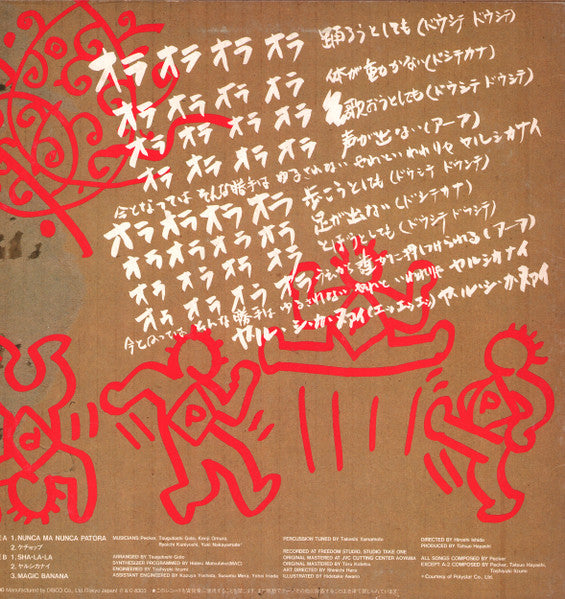 オラ オラ オラ オラ 踊ろうとしても(ドウシテ ドウシテ)
オラ オラ オラ オラ 体が動かない(ドシテカナ)
オラ オラ オラ オラ 歌おうとしても(ドウシテ ドウシテ)
オラ オラ オラ オラ 声が出ない(アーア)
今となっては そんな勝手は ゆるされない やれといわれりゃ ヤルシカナイ
オラ オラ オラ オラ 歩こうとしても(ドウシテ ドウシテ)
オラ オラ オラ オラ 足が出ない(ドシテカナ)
オラ オラ オラ オラ とぼうとしても(ドウシテ ドウシテ)
オラ オラ オラ オラ うえから 押しつけられる(アーア)
今となっては そんな勝手は ゆるされない やれと いわれりゃ ヤルシカナイ
ヤ・ル・シ・カ・ヌァイ(エッエッエッエッ)ヤ・ル・シ・カ・ヌァイ
P
P
d
P
E A
1. NUNCA MA NUNCA PATORA
2. ケチャップ
E B
1. SHA-LA-LA
2. ヤルシカナイ
3. MAGIC BANANA
MUSICIANS: Pecker, Tsugutoshi Goto, Kenji Omura,
Ryoichi Kuniyoshi, Yuki Nakayamate*
ARRANGED BY Tsugutoshi Goto
SYNTHESIZER PROGRAMMED BY Hideki Matsutake(MAC)
ENGINEERED BY Toshiyuki Izumi
ASSISTANT ENGINEERED BY Kazuya Yoshida, Susumu Mera, Yutaka Ineda
PERCUSSION TUNED BY Takashi Yamamoto
RECORDED AT FREEDOM STUDIO, STUDIO TAKE ONE
ORIGINAL MASTERED AT JVC CUTTING CENTER AOYAMA
ORIGINAL MASTERED BY Toru Kotetsu
ART DIRECTED BY Shinichi Hara
ILLUSTRATED BY Hidetake Awano
DIRECTED BY Hiroshi Ishida
PRODUCED BY Tatsuo Hayashi
ALL SONGS COMPOSED BY Pecker,
EXCEPT A-2 COMPOSED BY Pecker,
Toshiyuki Izumi
* Courtesy of Polystar Co., Ltd.
Manufactured by DISCO Co., Ltd.(Tokyo Japan)